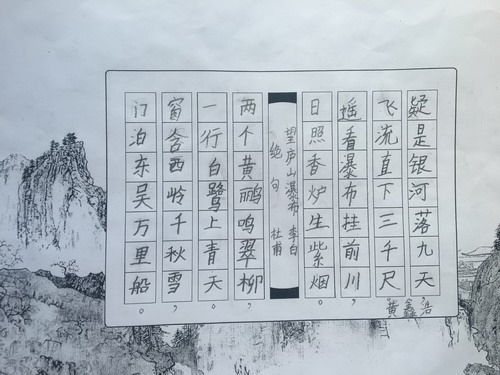 望庐山瀑布 李白
日照香炉生紫烟。
遥看瀑布挂前川，
飞流直下三千尺，
疑是银河落九天。
绝句 杜甫
两个黄鹂鸣翠柳，
一行白鹭上青天。
窗含西岭千秋雪，
门泊东吴万里船。
黄鑫浩